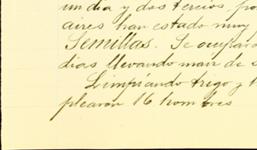 un dia y dos tercios, po
aires han estado muy
Semillas. Se ocupara
dias llevando maiz de
Limpiando trigo y t
plearon 16 hombres